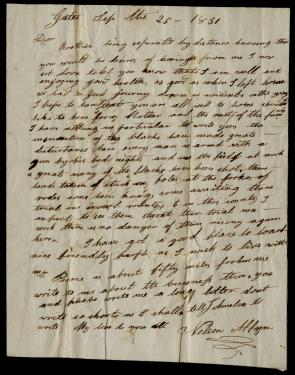 Gates Sep the 25 - 1831
Dear
Brother being separated by distance knowing that
you would be desirous of hearing from me I now
set down to let you know that I am well and
enjoying good health as good as when I left home
we had a good journey
I hope to you are all well to home
like to hear from Mother and the rest of the
I have nothing in particular to write you the
insurrection of the blacks have made great
disturbance here every man is armed with a
gun by his bed nights and in the field at work
a great many of the blacks have been shot there
heads taken of stuck on poles at the of
rodes some been hung, some awaiting there
trial in several countys, 6 in this county I
expect to see them there trial
there is no danger of there rising again
here. I have got a good place to board
nice friendly people as I wish to live with
Pierce is about fifty miles from me
write to me about the business then, you
and write me a long letter dont
write so short as I shall tell Amelia to
write My love to you all
Nelson Allyn